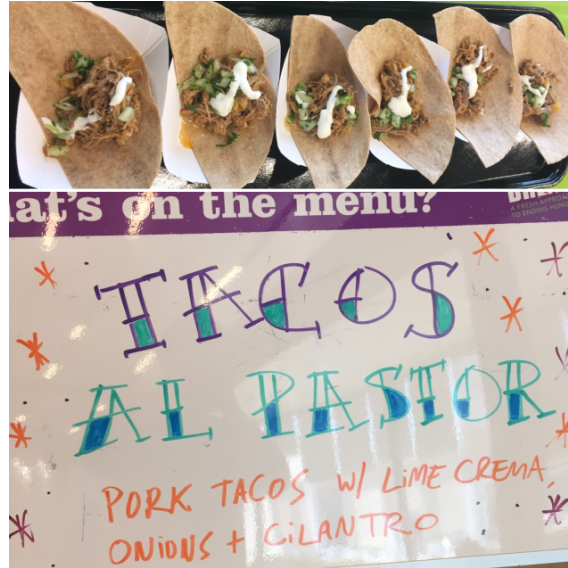 at's on the menu?
A FRESH APPROA
TO ENDING HUNG
TACOS
AL PASTOR
PORK TACOS W/ LIME CREMA,
ONIONS + CILANTRO